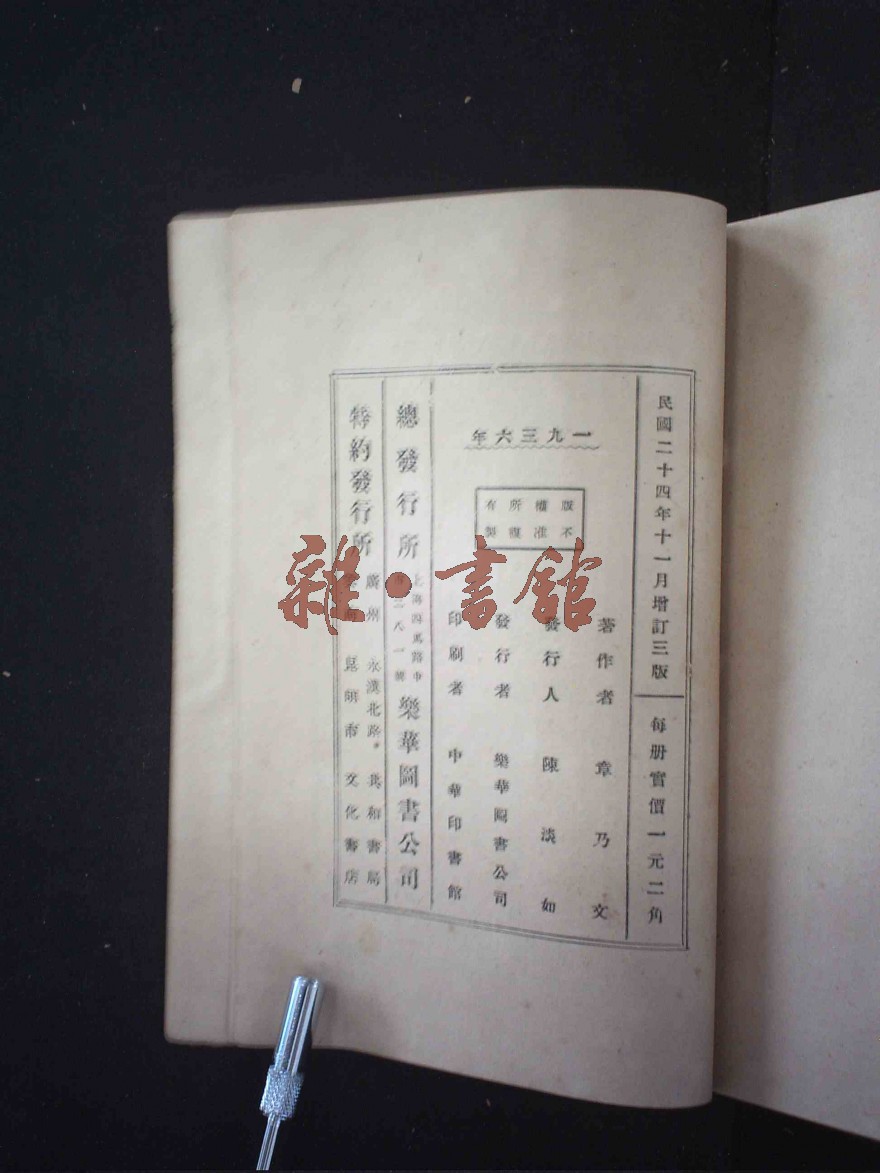 民國二十四年十一月增訂三版
每册實價一元二角
一九三六年
版權所有
不准複製
著作者 章乃文
發行人 陳淡如
發行者 樂華圖書公司
印刷者 中華印書館
總發行所
上海四馬路中
三八一號
樂華圖書公司
特約發行所
廣州 永漢北路 共和書局
昆明市 文化書店
雜·書館